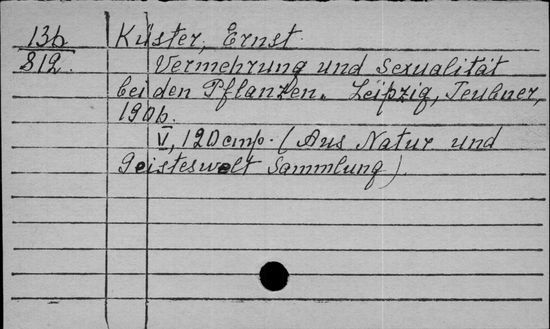 13b Küster, Ernst.
812. Vermehrung und Sexualität
bei den Pflanzen. Leipzig, Teubner,
190b.
V, 120 cmp. (Aus Natur und
Geisteswelt Sammlung).